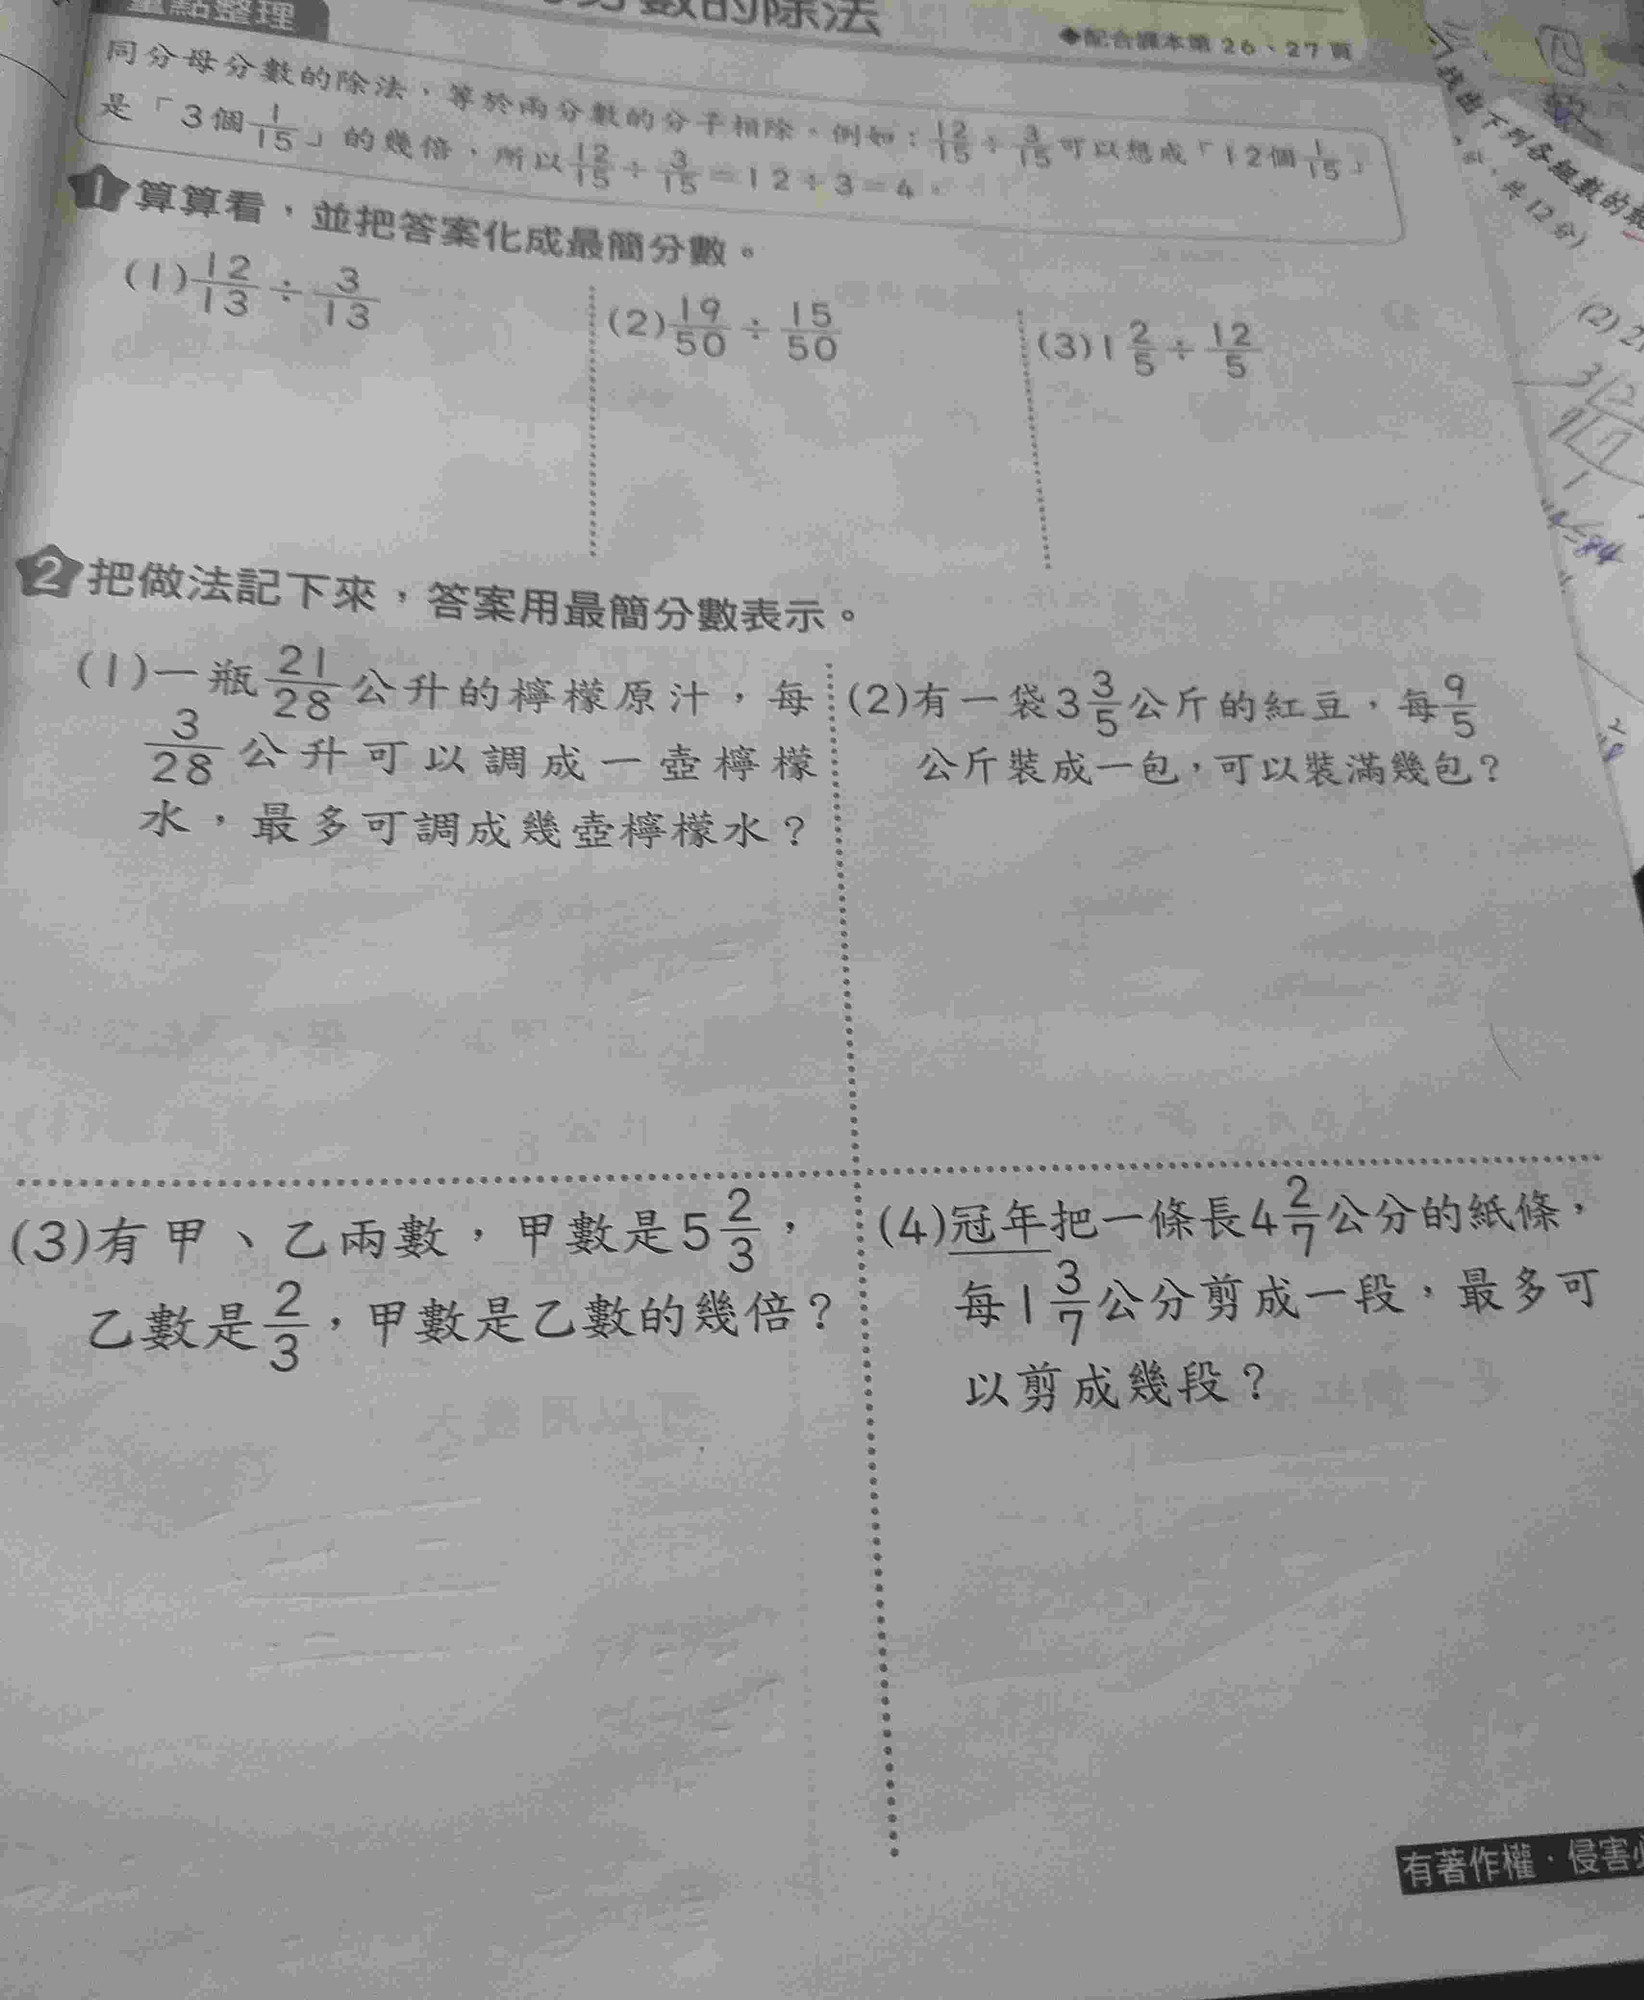 重點整理
數的除法
◆配合課本第26、27頁
同分母分數的除法,等於兩分數的分子相除。例如:12/15÷3/15可以想成「12個1/15」
是「3個1/15」的幾倍,所以12/15÷3/15=12÷3=4。
1 算算看,並把答案化成最簡分數。
(1)12/13÷3/13
(2)19/50÷15/50
(3)1 2/5÷12/5
2 把做法記下來,答案用最簡分數表示。
(1)一瓶21/28公升的檸檬原汁,每
3/28公升可以調成一壺檸檬
水,最多可調成幾壺檸檬水?
(2)有一袋3 3/5公斤的紅豆,每9/5
公斤裝成一包,可以裝滿幾包?
(3)有甲、乙兩數,甲數是5 2/3,
乙數是2/3,甲數是乙數的幾倍?
(4)冠年把一條長4 2/7公分的紙條,
每1 3/7公分剪成一段,最多可
以剪成幾段?
有著作權·侵害
下列各組數的
共12分)
(2)2